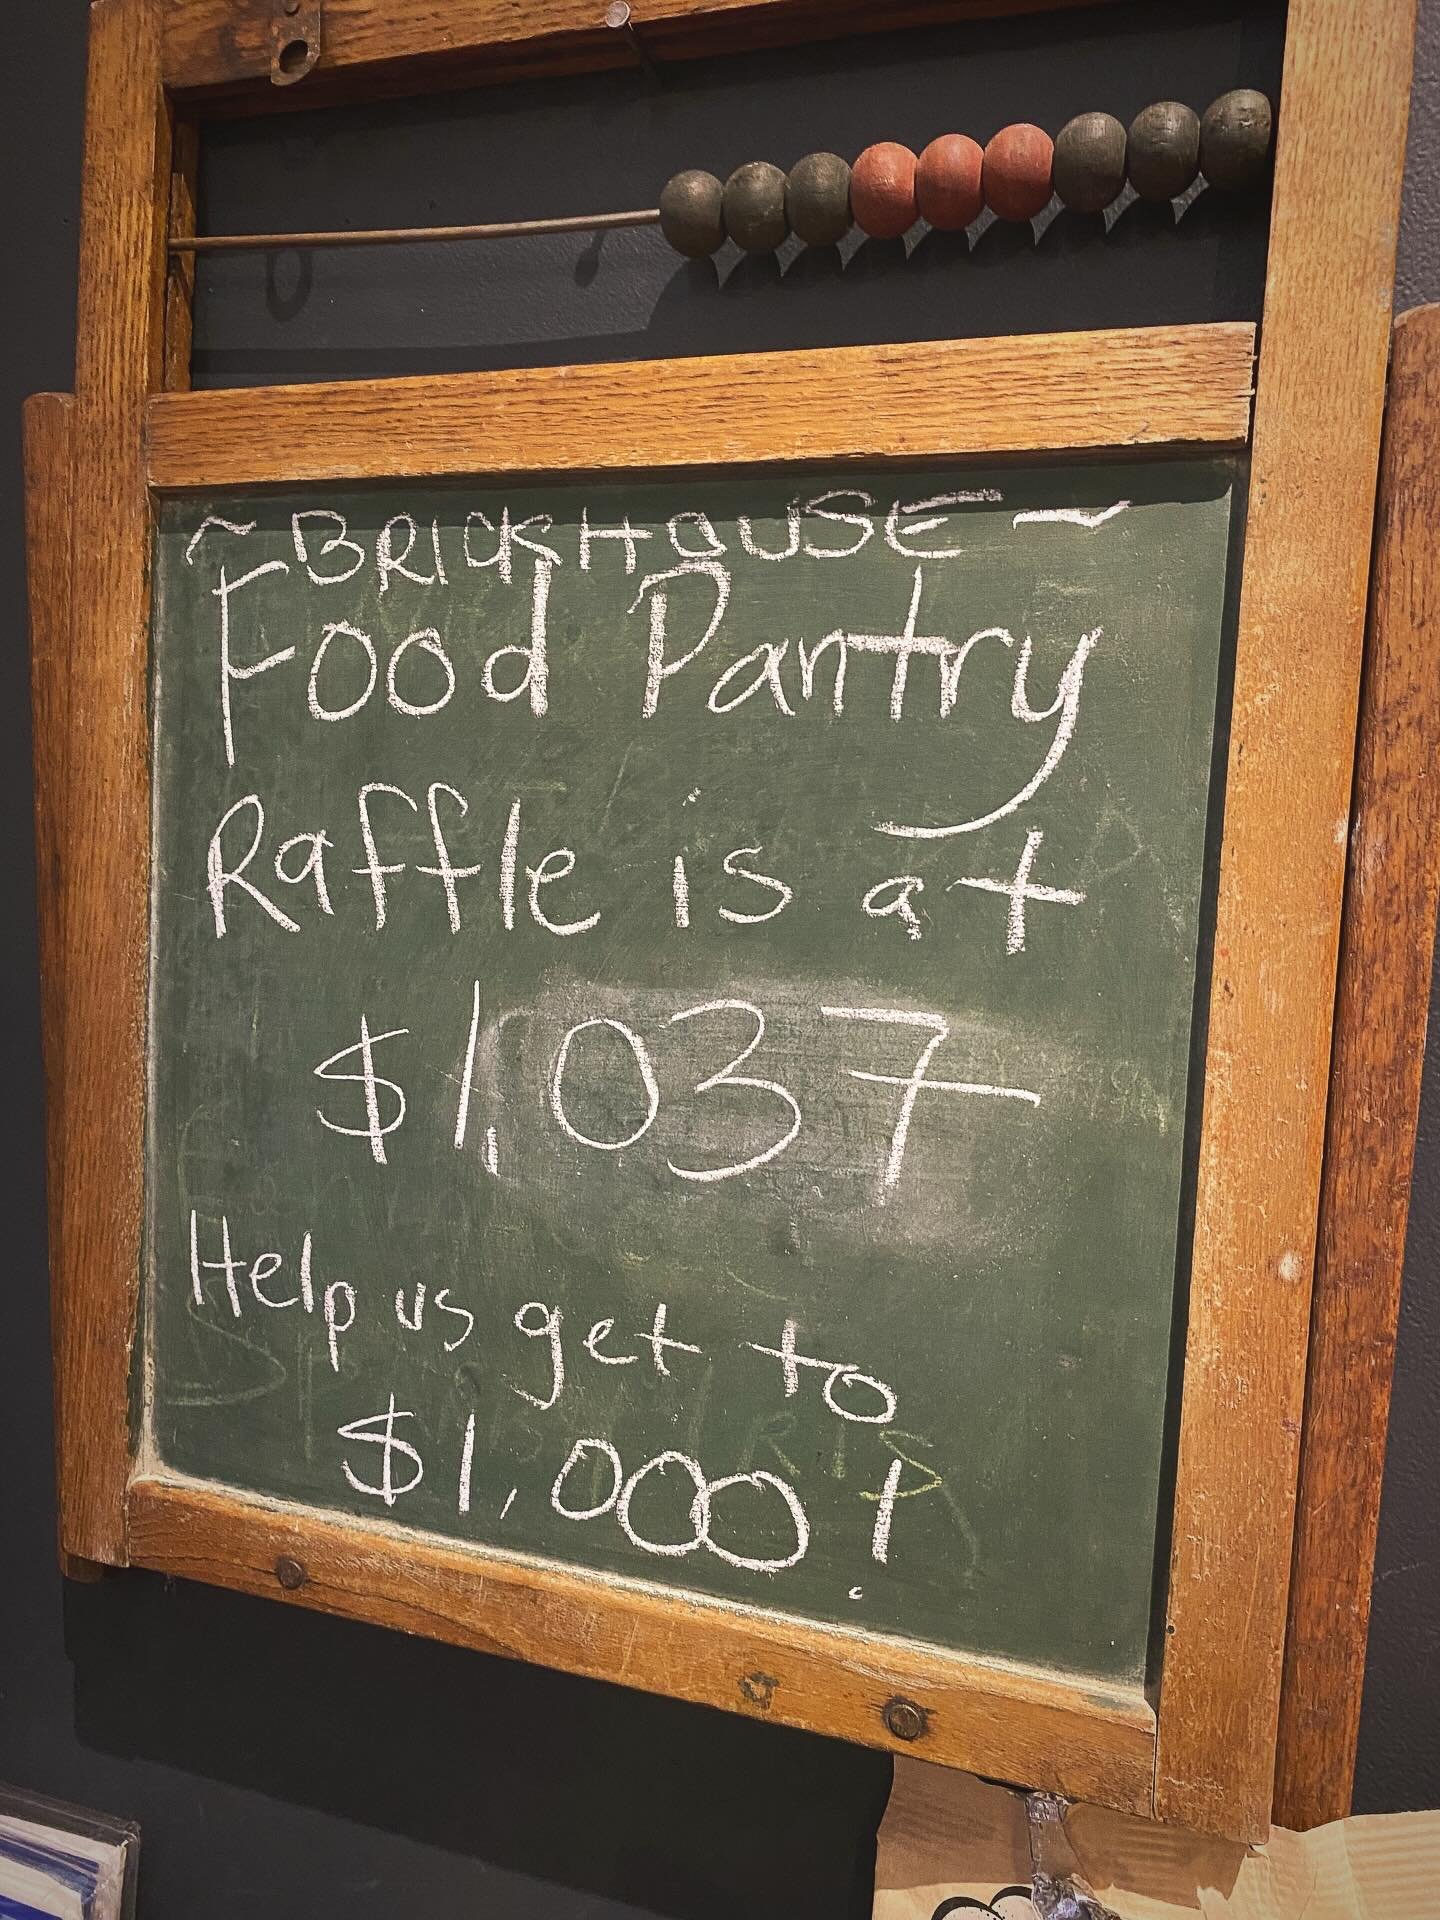 ~ BRICKHOUSE ~
Food Pantry
Raffle is at
$1,037
Help us get to
$1,000!